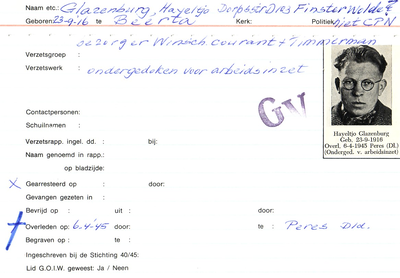 Naam etc: Glazenburg, Hayeltjo Dorpsstr Finsterwolde
Geboren: 23-9-16 te Beerta Kerk: Politiek: niet CPN
bezorger Winsch. courant + Timmerman
Verzetsgroep :
Verzetswerk : ondergedoken voor arbeidsinzet
GV
Contactpersonen:
Schuilnamen :
Verzetsrapp. ingel. dd. : bij:
Naam genoemd in rapp.:
op bladzijde:
Hayeltjo Glazenburg
Geb. 23-9-1916
Overl. 6-4-1945 Peres (Dl.)
(Onderged. v. arbeidsinzet)
X Gearresteerd op : door:
Gevangen gezeten in :
Bevrijd op : uit : door:
Overleden op: 6-4-'45 door: te : Peres Dld.
Begraven op : te :
Ingeschreven bij de Stichting 40/45:
Lid G.O.I.W. geweest: Ja / Neen